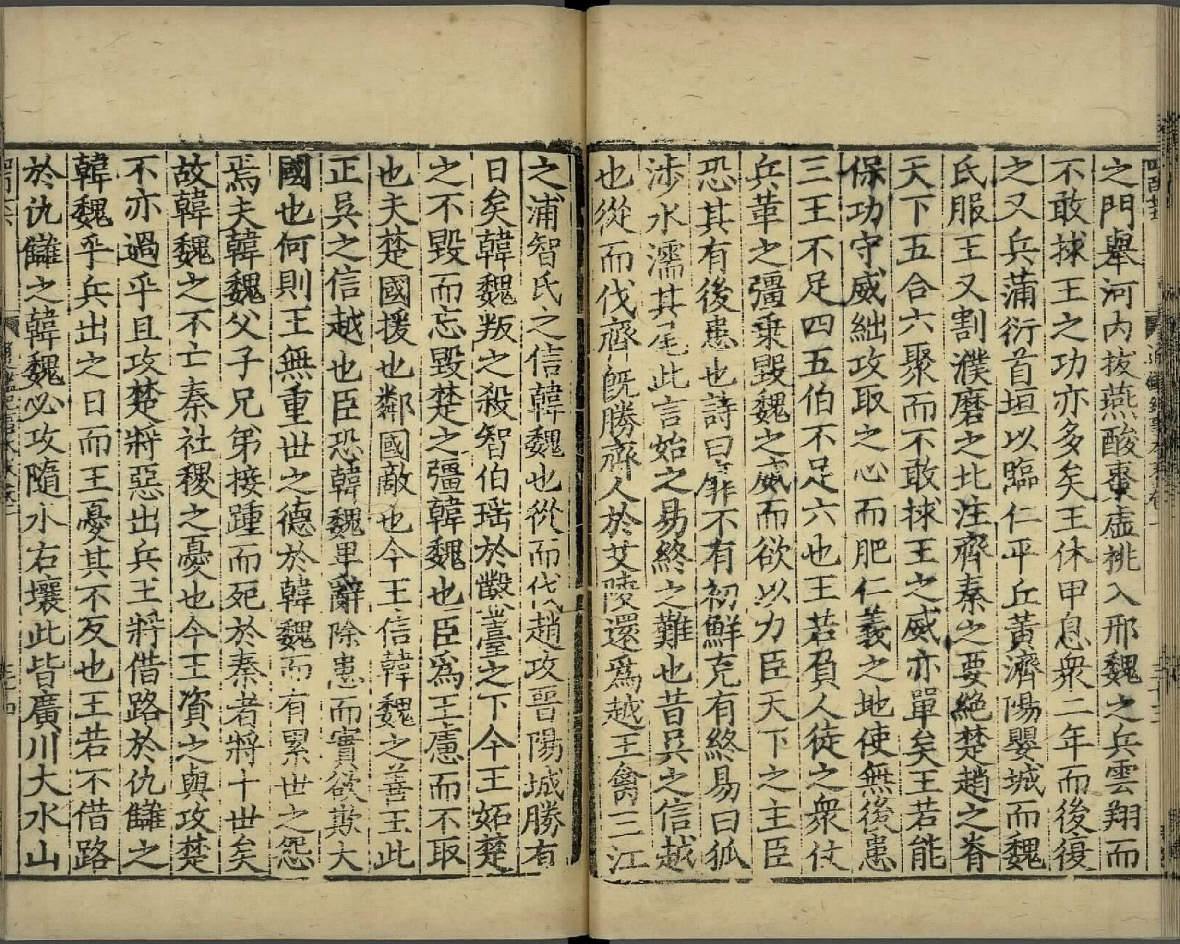 之門舉河内拔燕酸棗虚桃入邢魏之兵雲翔而
不敢捄王之功亦多矣王休甲息衆二年而後復
之又兵蒲衍首垣以臨仁平丘黃濟陽嬰城而魏
氏服王又割濮磨之北注齊秦之要絶楚趙之脊
天下五合六聚而不敢捄王之威亦單矣王若能
保功守威絀攻取之心而肥仁義之地使無後患
三王不足四五伯不足六也王若負人徒之衆仗
兵革之彊乗毀魏之威而欲以力臣天下之主臣
恐其有後患也詩曰靡不有初鮮克有終易曰狐
涉水濡其尾此言始之易終之難也昔吳之信越
也從而伐齊旣勝齊人於艾陵還爲越王禽三江
之浦智氏之信韓魏也從而伐趙攻晋陽城勝有
日矣韓魏叛之殺智伯瑶於鑿臺之下今王妬楚
之不毀而忘毀楚之彊韓魏也臣爲王慮而不取
也夫楚國援也鄰國敵也今王信韓魏之善王此
正吳之信越也臣恐韓魏卑辭除患而實欲欺大
國也何則王無重世之德於韓魏而有累世之怨
焉夫韓魏父子兄弟接踵而死於秦者將十世矣
故韓魏之不亡秦社稷之憂也今王資之與攻楚
不亦過乎且攻楚將惡出兵王將借路於仇讎之
韓魏乎兵出之日而王憂其不反也王若不借路
於仇讎之韓魏必攻隨水右壤此皆廣川大水山